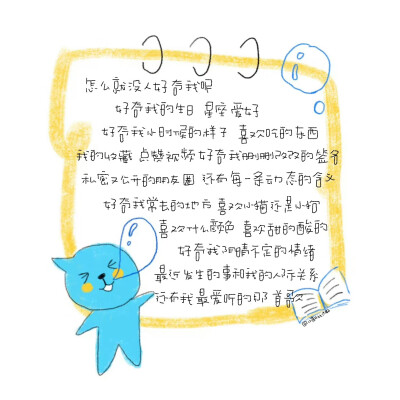 怎么就没人好奇我呢
好奇我的生日 星座 爱好
好奇我小时候的样子 喜欢吃的东西
我的收藏 点赞视频 好奇我删删改改的签名
私密又公开的朋友圈 还有每一条动态的含义
好奇我常去的地方 喜欢小猫还是小狗
喜欢什么颜色 喜欢甜的酸的
好奇我阴晴不定的情绪
最近发生的事和我的人际关系
还有我最爱听的那首歌